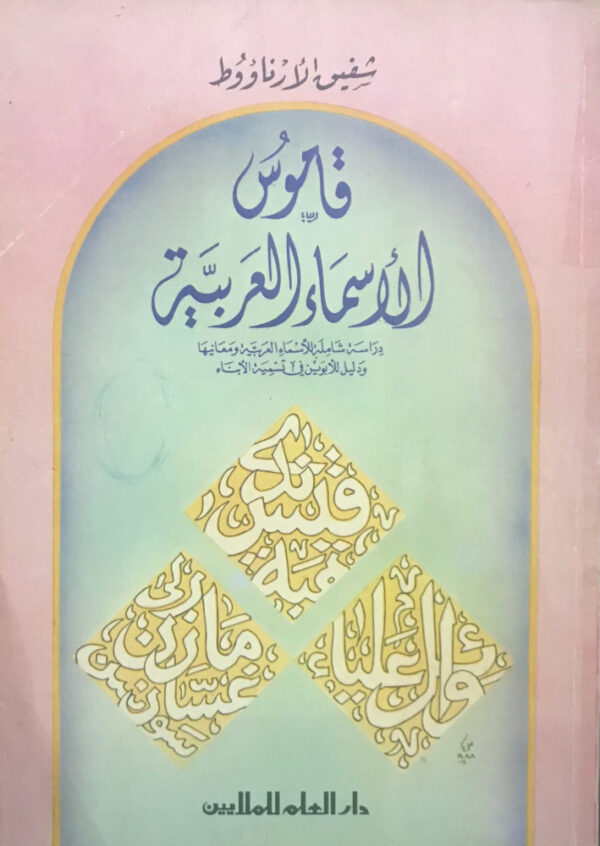 شفيق الأرناؤوط
قاموسُ
الأسماءِ العَربيَّة
دِراسَة شامِلَة للأسْماءِ العَرَبيّة ومَعانيها
وَدليل للأبوَيْن في تسْمِيَة الأبناء
قيس
مَازن
عَلياء
وائل
غسَّان
سَوسَن
دار العلم للملايين